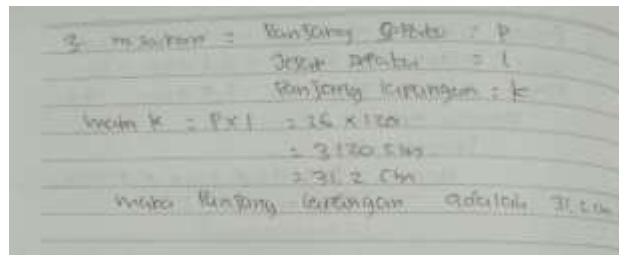 3. misalkan = Panjang sepatu : p
Jejak sepatu = l
Panjang lapangan : k
maka k = P x l = 26 x 120
= 3120 cm
= 31,2 cm
maka panjang lapangan adalah 31,2 cm